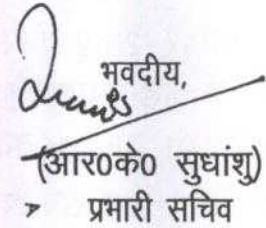 भवदीय,
(आर0के0 सुधांशु)
प्रभारी सचिव